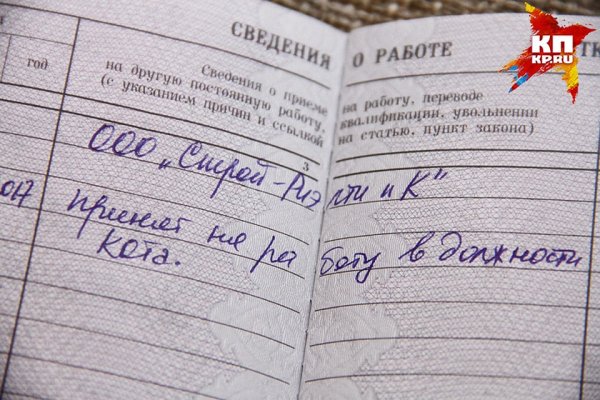 СВЕДЕНИЯ О РАБОТЕ
год
Сведения о приеме на работу, переводе
на другую постоянную работу, квалификации, увольнении
(с указанием причин и ссылкой на статью, пункт закона)
3
ООО „Строй-Риэлти и К"
017 принят на работу в должности
кота.
КП
KP.RU